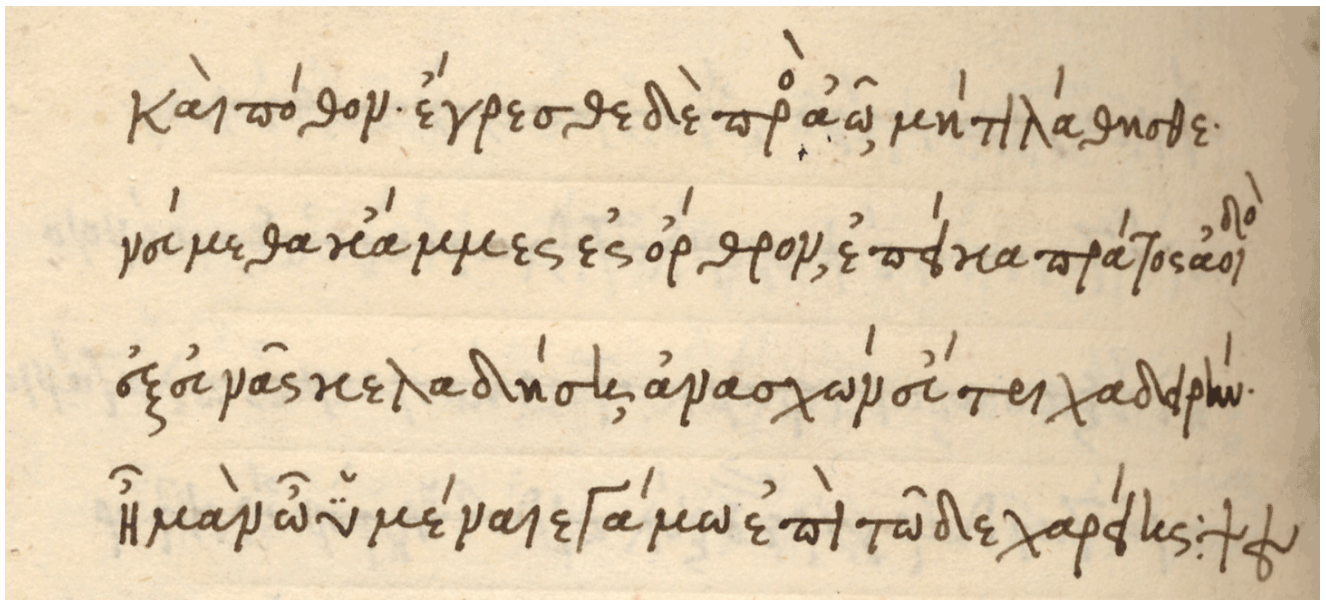 Καὶ πόθον· ἔγρεσθε δὲ πρὸ ἀῶ, μή τι λάθησθε·
νεύμεθα κἄμμες ἐς ὄρθρον, ἐπεί κα πράτος ἀοιδὸ
ἐξ εὐνᾶς κελαδήσης, ἀνασχών εὔτριχα δειρήν·
Ἦ μὰν ὦ ὑμέναιε γάμω ἐπὶ τῶδε χαρείης: